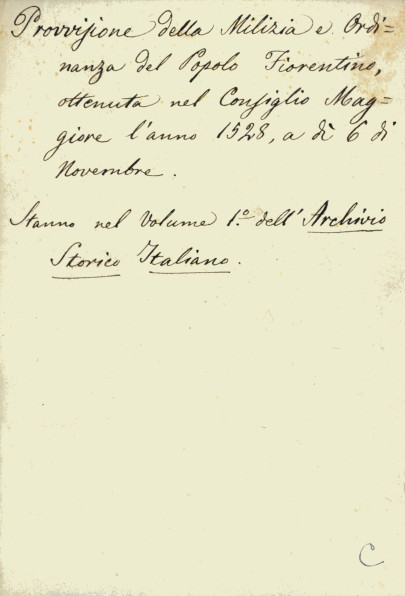 Provvisione della Milizia e Ordi=
nanza del Popolo Fiorentino,
ottenuta nel Consiglio Mag=
giore l'anno 1528, a dì 6 di
Novembre.
Stanno nel Volume 1.º dell'Archivio
Storico Italiano.
C